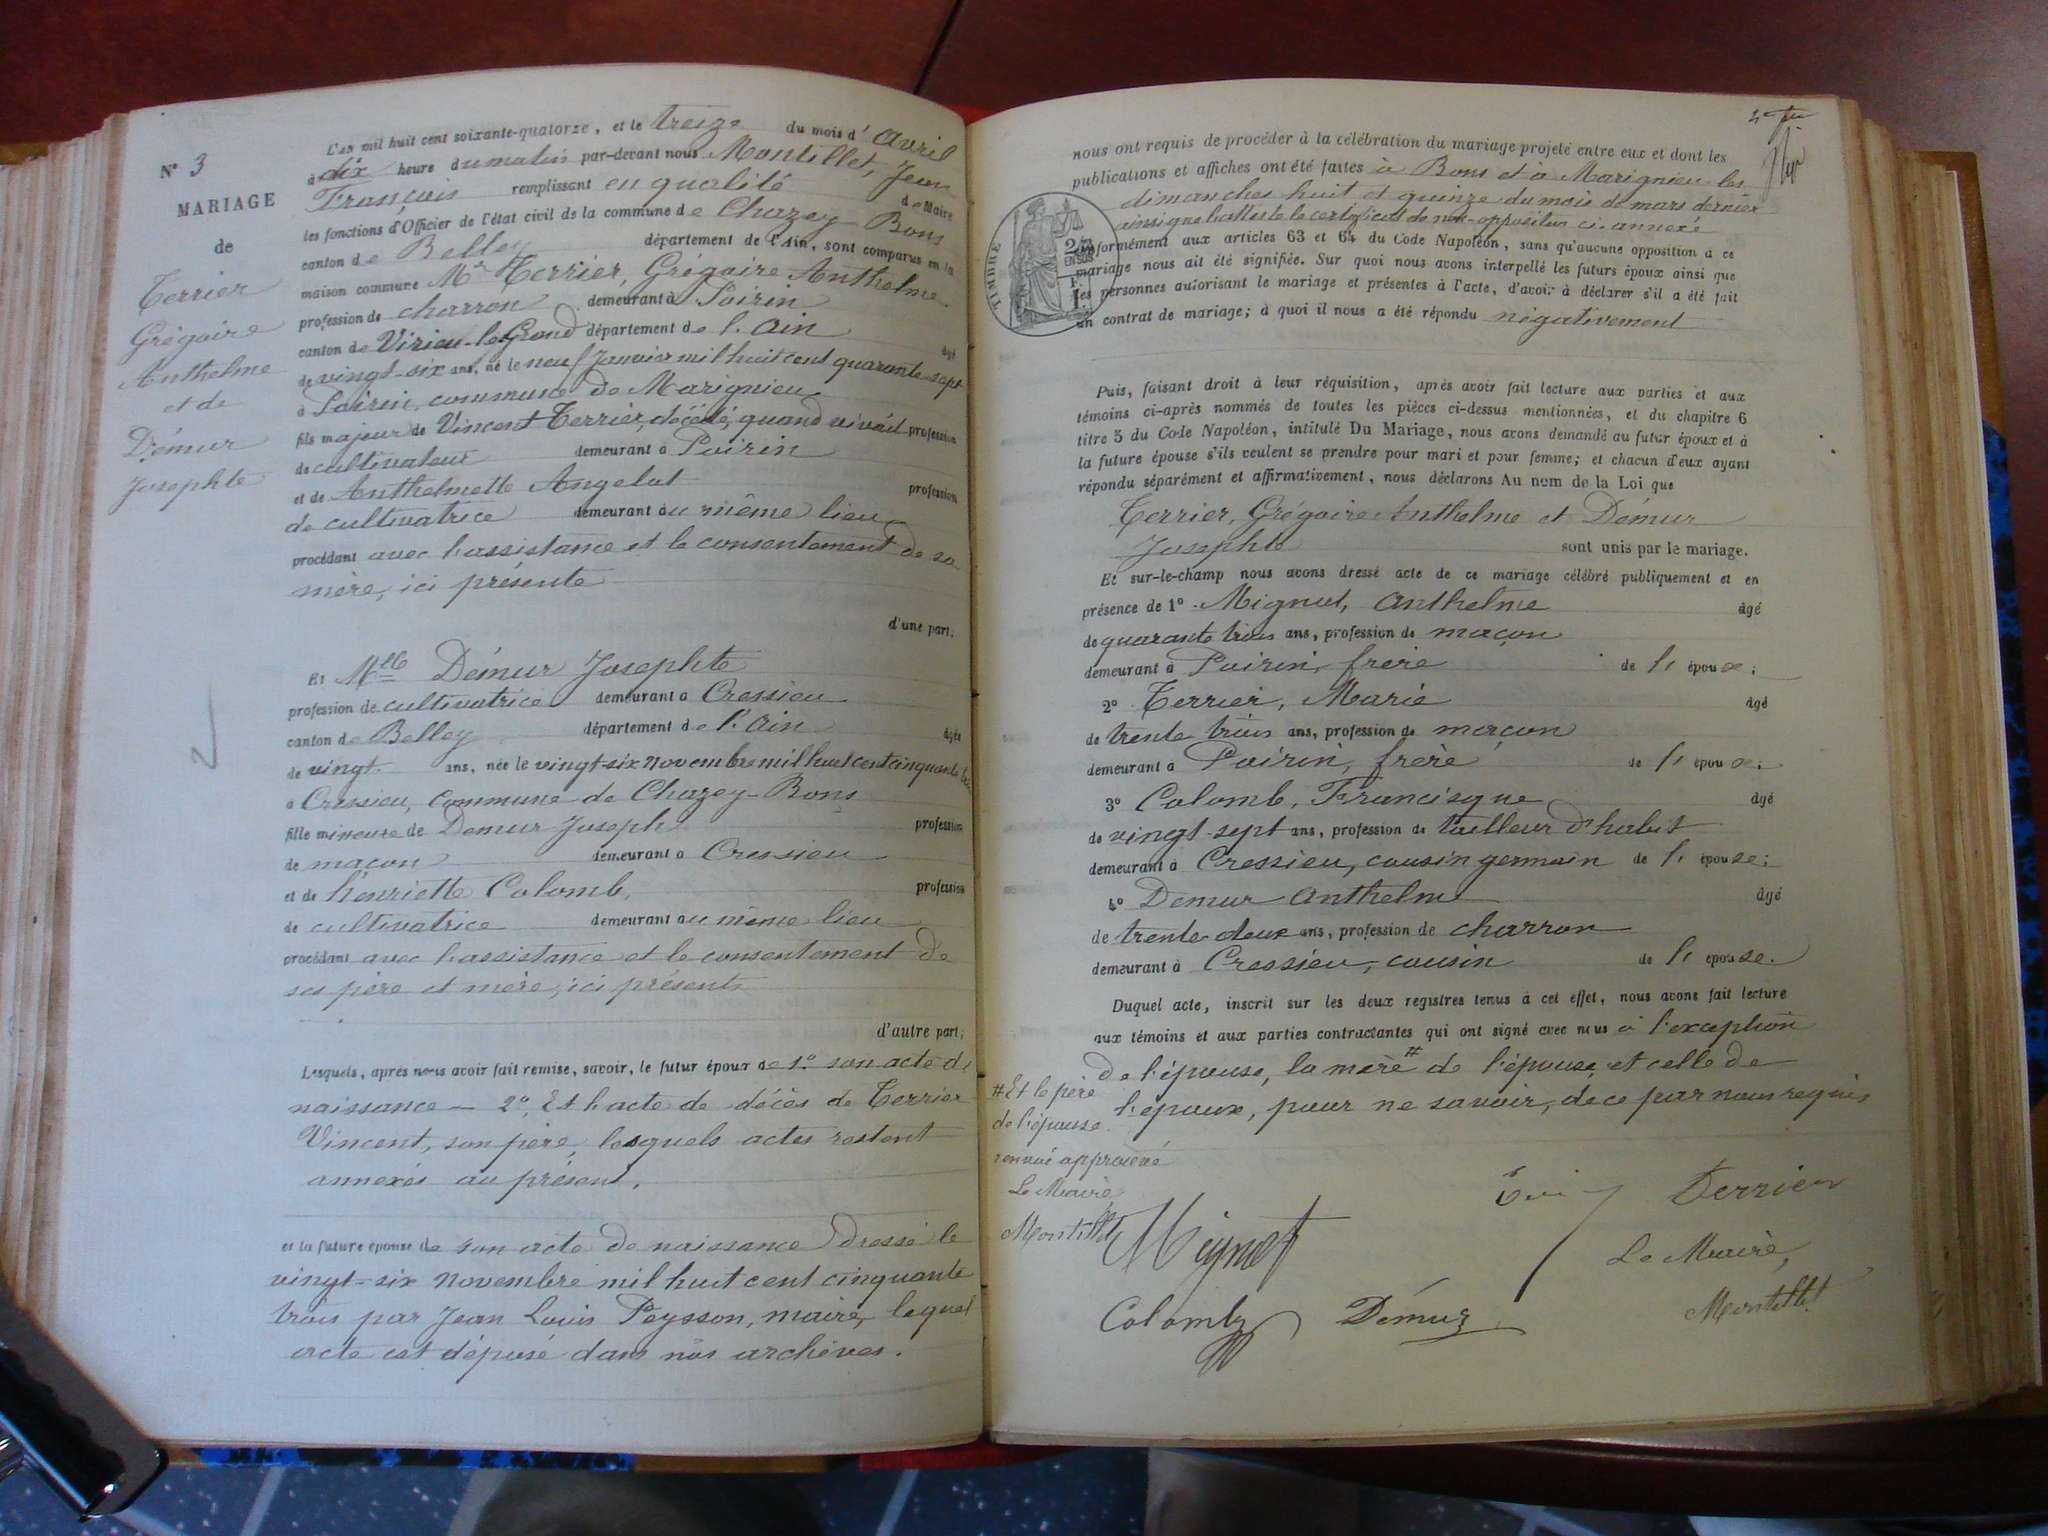 N° 3
MARIAGE
de
Terrier
Grégoire
Anthelme
et de
Démur
Josephte
L'an mil huit cent soixante-quatorze, et le treize du mois d'avril
à dix heure du matin par-devant nous Montillet, Jean
François remplissant en qualité de Maire
les fonctions d'Officier de l'état civil de la commune de Chazey-Bons
canton de Belley département de l'Ain, sont comparus en la
maison commune Mr Terrier, Grégoire Anthelme
profession de charron demeurant à Poirin
canton de Virieu-le-Grand département de l'Ain âgé
de vingt-six ans, né le neuf Janvier mil huit cent quarante-sept
à Poirin, commune de Marignieu
fils majeur de Vincent Terrier, décédé, quand vivait profession
de cultivateur demeurant à Poirin
et de Anthelmette Angelot profession
de cultivatrice demeurant au même lieu
procédant avec l'assistance et le consentement de sa
mère, ici présente
d'une part;
Et Melle Démur Josephte
profession de cultivatrice demeurant à Cressieu
canton de Belley département de l'Ain âgée
de vingt ans, née le vingt-six novembre mil huit cent cinquante trois
à Cressieu, commune de Chazey-Bons
fille mineure de Demur Joseph profession
de maçon demeurant à Cressieu
et de henriette Colomb, profession
de cultivatrice demeurant au même lieu
procédant avec l'assistance et le consentement de
ses père et mère, ici présents
d'autre part;
Lesquels, après nous avoir fait remise, savoir, le futur époux de 1° son acte de
naissance — 2° Et l'acte de décès de Terrier
Vincent, son père, lesquels actes restent
annexés au présent.
et la future épouse de son acte de naissance dressé le
vingt-six novembre mil huit cent cinquante
trois par Jean Louis Peysson, maire, lequel
acte est déposé dans nos archives.
nous ont requis de procéder à la célébration du mariage projeté entre eux et dont les
publications et affiches ont été faites à Bons et à Marignieu les
dimanches huit et quinze du mois de mars dernier
ainsi que l'atteste le certificat de non-opposition ci-annexé
TIMBRE
EN SUS
conformément aux articles 63 et 64 du Code Napoléon, sans qu'aucune opposition a ce
mariage nous ait été signifiée. Sur quoi nous avons interpellé les futurs époux ainsi que
les personnes autorisant le mariage et présentes à l'acte, d'avoir à déclarer s'il a été fait
un contrat de mariage; à quoi il nous a été répondu négativement
Puis, faisant droit à leur réquisition, après avoir fait lecture aux parties et aux
témoins ci-après nommés de toutes les pièces ci-dessus mentionnées, et du chapitre 6
titre 5 du Code Napoléon, intitulé Du Mariage, nous avons demandé au futur époux et à
la future épouse s'ils veulent se prendre pour mari et pour femme; et chacun d'eux ayant
répondu séparément et affirmativement, nous déclarons Au nom de la Loi que
Terrier, Grégoire Anthelme et Démur
Josephte sont unis par le mariage.
Et sur-le-champ nous avons dressé acte de ce mariage célébré publiquement et en
présence de 1° Mignet, Anthelme âgé
de quarante trois ans, profession de maçon
demeurant à Poirin, frère de l'époux;
2° Terrier, Marie âgé
de trente trois ans, profession de maçon
demeurant à Poirin, frère de l'époux;
3° Colomb, Francisque âgé
de vingt-sept ans, profession de tailleur d'habit
demeurant à Cressieu, cousin germain de l'épouse;
4° Demur Anthelme âgé
de trente deux ans, profession de charron
demeurant à Cressieu, cousin de l'épouse.
Duquel acte, inscrit sur les deux registres tenus à cet effet, nous avons fait lecture
aux témoins et aux parties contractantes qui ont signé avec nous à l'exception
de l'épouse, la mère # de l'épouse, et celle de
l'époux, pour ne savoir, de ce par nous requis
# Et le père
de l'épouse.
renvoi approuvé
Le Maire
Montillet
Mignet
Terrier
Le Maire,
Colomb
Démur
Montillet